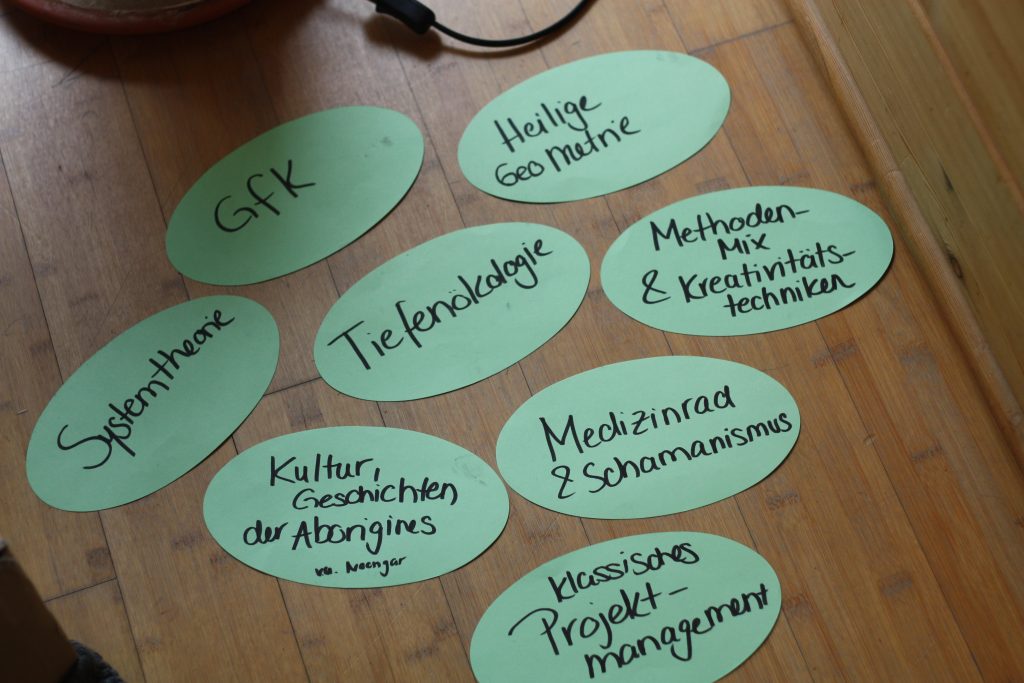 Heilige
Geometrie
GfK
Methoden-
Mix
& Kreativitäts-
techniken
Tiefenökologie
Systemtheorie
Medizinrad
& Schamanismus
Kultur,
Geschichten
der Aborigines
Noongar
Klassisches
Projekt-
management